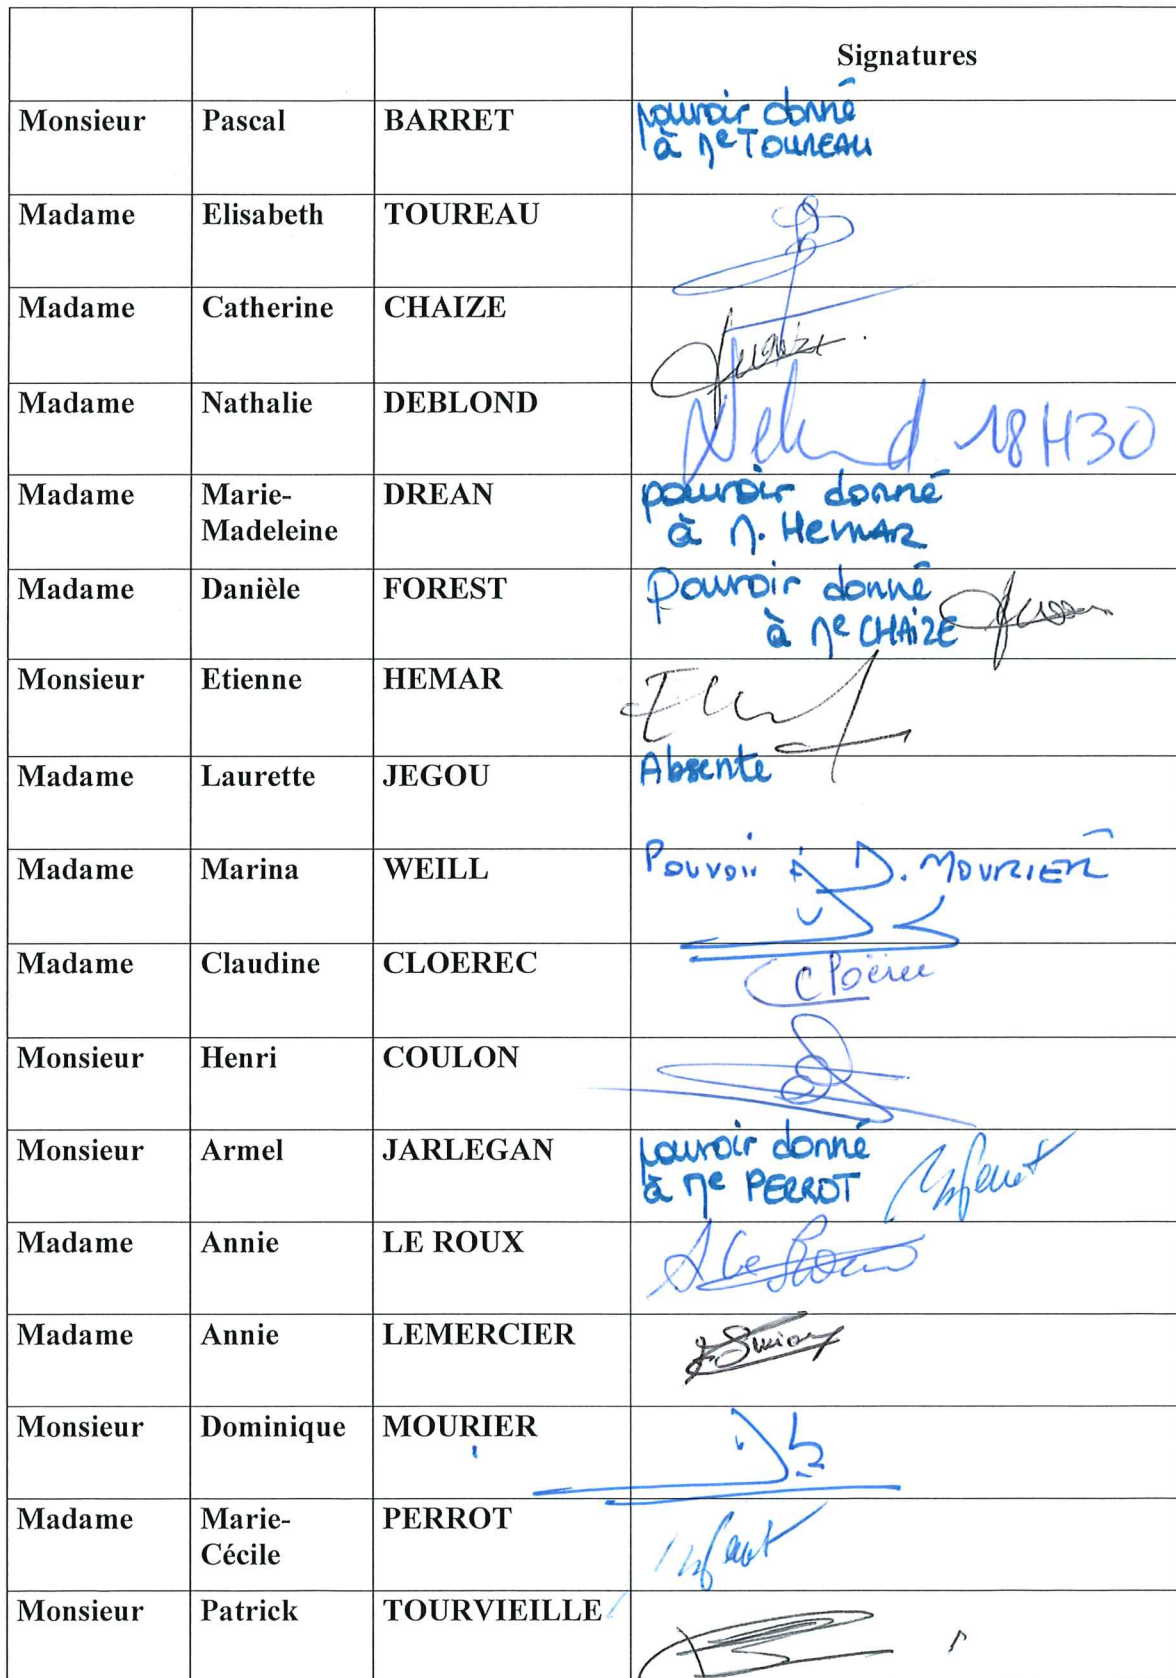 Signatures
Monsieur Pascal BARRET pouvoir donné
à Me TOUREAU
Madame Elisabeth TOUREAU
Madame Catherine CHAIZE
Madame Nathalie DEBLOND 18H30
Madame Marie- DREAN pouvoir donné
Madeleine à M. HEMAR
Madame Danièle FOREST Pouvoir donné
à Me CHAIZE
Monsieur Etienne HEMAR
Madame Laurette JEGOU Absente
Madame Marina WEILL Pouvoir à D. MOURIER
Madame Claudine CLOEREC
Monsieur Henri COULON
Monsieur Armel JARLEGAN pouvoir donné
à Me PERROT
Madame Annie LE ROUX
Madame Annie LEMERCIER
Monsieur Dominique MOURIER
Madame Marie- PERROT
Cécile
Monsieur Patrick TOURVIEILLE